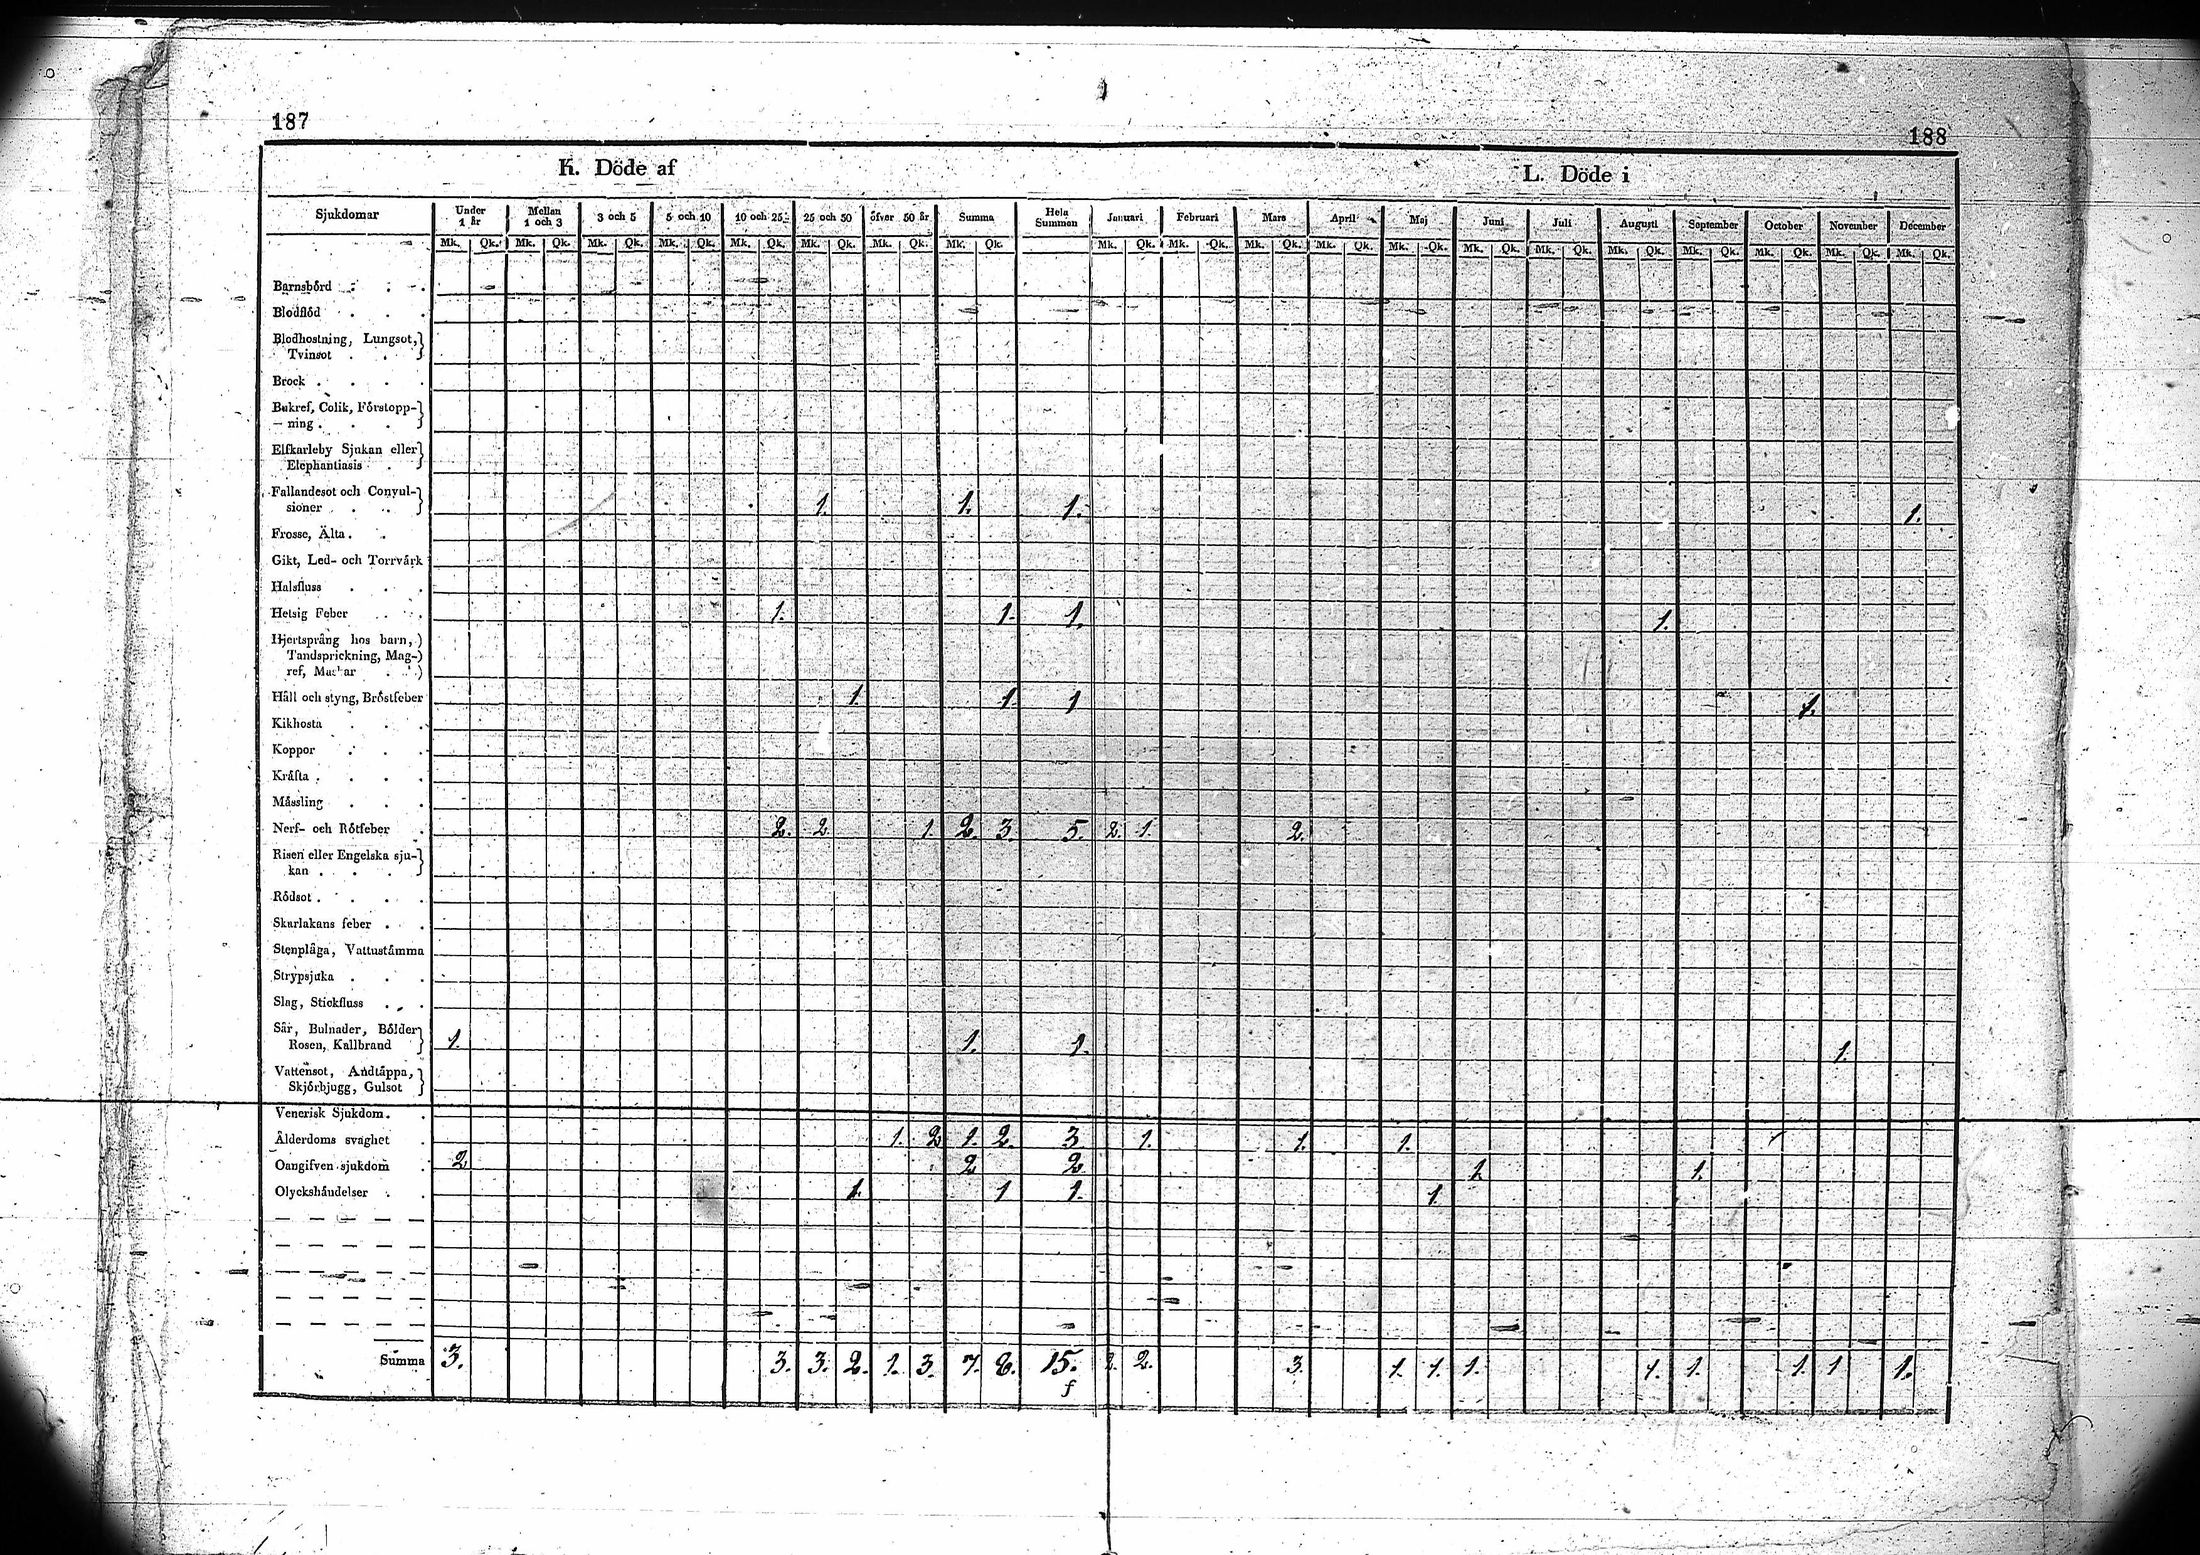 187
188
K. Döde af
L. Döde i
Sjukdomar
Under 1 år
Mellan 1 och 3
3 och 5
5 och 10
10 och 25
25 och 50
öfver 50 år
Summa
Hela Summan
Januari
Februari
Mars
April
Maj
Juni
Juli
Augusti
September
October
November
December
Mk. Qk. Mk. Qk. Mk. Qk. Mk. Qk. Mk. Qk. Mk. Qk. Mk. Qk. Mk. Qk. Mk. Qk. Mk. Qk. Mk. Qk. Mk. Qk. Mk. Qk. Mk. Qk. Mk. Qk. Mk. Qk. Mk. Qk. Mk. Qk. Mk. Qk. Mk. Qk.
Barnsbörd
Blodflöd
Blodhostning, Lungsot,
Tvinsot
Brock
Bukref, Colik, Förstopp-
ning
Elfkarleby Sjukan eller
Elephantiasis
Fallandesot och Convul-
sioner 1. 1. 1. 1.
Frosse, Älta
Gikt, Led- och Torrvärk
Halsfluss
Hetsig Feber 1. 1. 1. 1.
Hjertsprång hos barn,
Tandsprickning, Mag-
ref, Maskar
Håll och styng, Bröstfeber 1. 1. 1 1.
Kikhosta
Koppor
Kräfta
Mässling
Nerf- och Rötfeber 2. 2. 1. 2. 3. 5. 2. 1. 2.
Risen eller Engelska sju-
kan
Rödsot
Skarlakans feber
Stenplåga, Vattustämma
Strypsjuka
Slag, Stickfluss
Sår, Bulnader, Bölder
Rosen, Kallbrand 1. 1. 1. 1.
Vattensot, Andtäppa,
Skjörbjugg, Gulsot
Venerisk Sjukdom
Ålderdoms svaghet 1. 2 1. 2. 3 1. 1. 1.
Oangifven sjukdom 2 2 2 1. 1.
Olyckshändelser 1. 1 1. 1.
Summa 3. 3. 3. 2. 1. 3. 7. 8. 15. 2. 2. 3. 1. 1. 1. 1. 1. 1. 1 1.